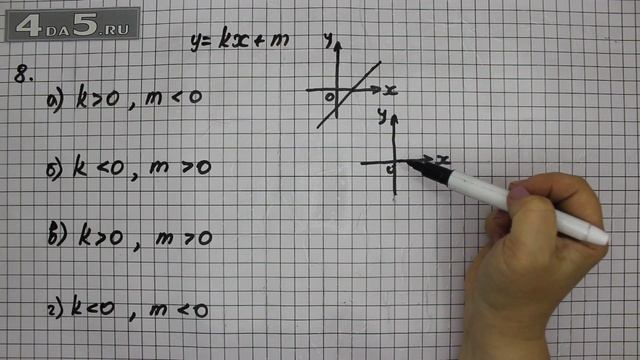 4DA5.RU
y = kx + m
8.
а) k > 0 , m < 0
б) k < 0 , m > 0
в) k > 0 , m > 0
г) k < 0 , m < 0
y
0
x
y
0
x